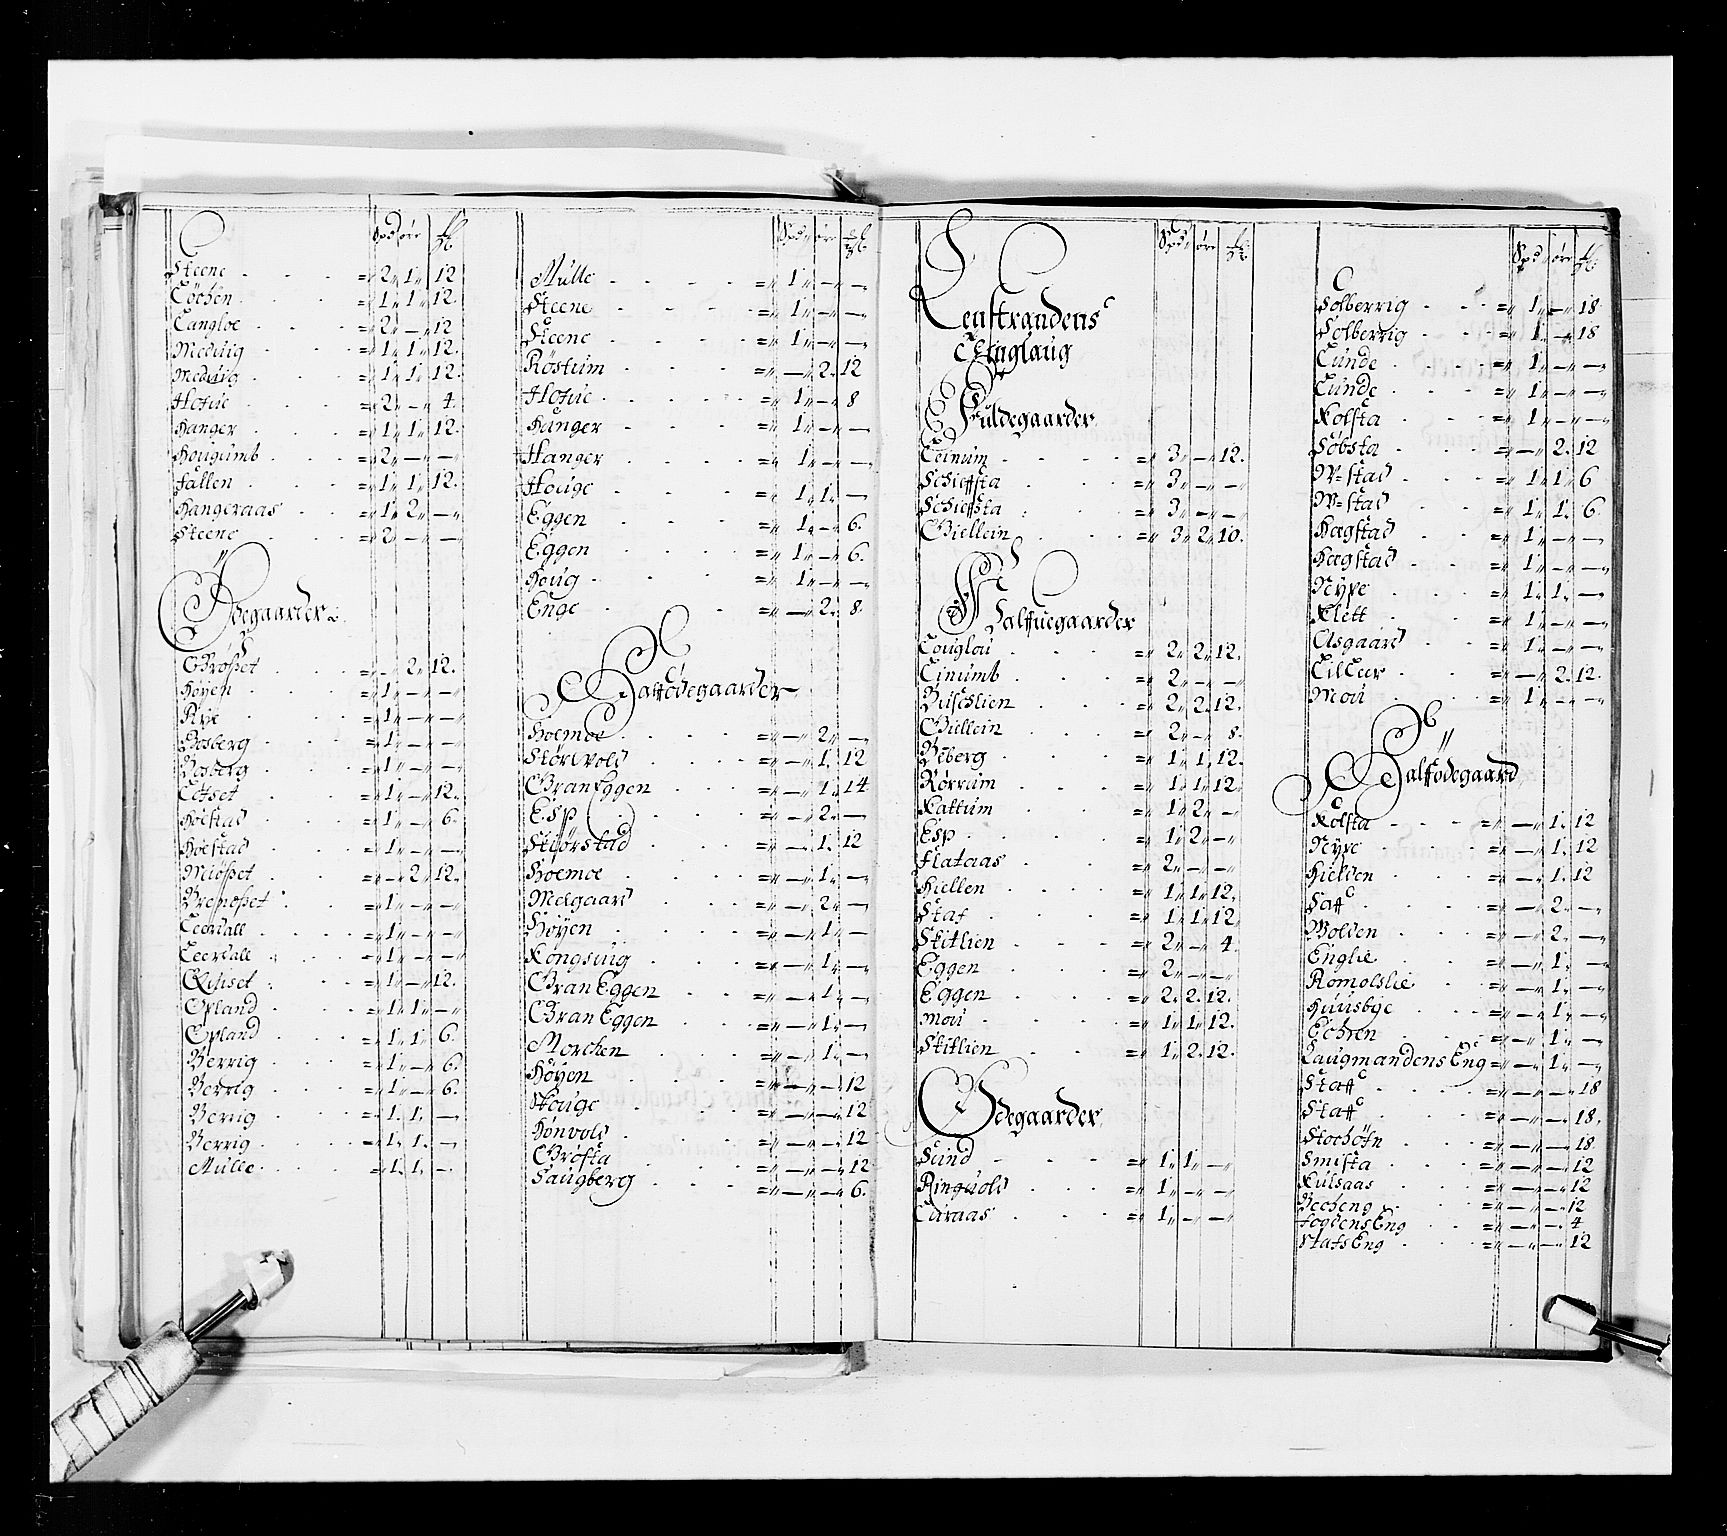 Spd øre
Steene = 2 „ 1 „ 12
Løchen = 1 „ 1 „ 12
Langloe = 2 „ — „ 12
Meduig = 1 „ 1 „ 12
Meduig = 1 „ 1 „ 12
Hofue = 2 „ — „ 4
Hanger = 1 „ 1 „ 12
Hougumb = 2 „ — „ —
Fallen = 1 „ 1 „ 12
Hangeraas = 1 „ 2 „ —
Steene = 2 „ — „ —
Ødegaarder
Grøsset = — „ 2 „ 12
Høyen = 1 „ — „ —
Rye = 1 „ — „ —
Bosberg = 1 „ — „ —
Bosberg = 1 „ — „ —
Lofset = 1 „ — „ 12
Hoelstad = 1 „ — „ 6
Hoelstad = 1 „ — „ —
Miøsset = — „ 2 „ 12
Brenesset = 1 „ — „ —
Leerdall = 1 „ — „ —
Leerdall = 1 „ — „ —
= 1 „ — „ 12
Opland = 1 „ 1 „ —
Opland = 1 „ 1 „ 6
Berrig = 1 „ — „ 6
Berrig = 1 „ — „ 6
Berrig = 1 „ 1 „ —
Berrig = 1 „ 1 „ —
Mulle = 1 „ 1 „ —
Spd øre
Mulle = 1 „ — „ —
Steene = 1 „ — „ —
Steene = 1 „ — „ —
Røstum = — „ 2 „ 12
Hofue = 1 „ — „ 8
Hanger = 1 „ — „ —
Hanger = 1 „ — „ —
Houge = 1 „ 1 „ —
Eggen = 1 „ — „ 6
Eggen = 1 „ — „ 6
Houg = 1 „ — „ —
Enge = — „ 2 „ 8
Halfødegaarder
Hoemoe = — „ 2 „ —
Størivold = — „ 1 „ 12
GranEggen = — „ 1 „ 14
Esp = — „ 2 „ —
Skiørstad = — „ 1 „ 12
Hoemoe = — „ 1 „ —
Melgaard = — „ 2 „ —
Høyen = — „ 1 „ —
Kongsuig = — „ 1 „ —
GranEggen = — „ 1 „ —
GranEggen = — „ 1 „ —
Morchen = — „ 1 „ —
Høyen = — „ — „ 12
Skouge = — „ — „ 12
Hønvold = — „ — „ 12
Grøsta = — „ — „ 12
Saugberg = — „ — „ 6
Spd øre
Lenstrandens
Tinglaug
Fuldegaarder
Leinum = 3 „ — „ 12
Schieffsta = 3 „ — „ —
Schieffsta = 3 „ — „ —
Giellein = 3 „ 2 „ 10
Halffuegaarder
Couglau = 2 „ 2 „ 12
Einumb = 2 „ — „ —
Buschlien = 2 „ 2 „ 12
Giellein = 2 „ — „ 8
Biberg = 1 „ 1 „ 12
Rørrum = 1 „ 1 „ 12
Kattum = 1 „ 2 „ —
Esp = 1 „ 2 „ —
Flataas = 2 „ — „ —
Hiellen = 1 „ 1 „ 12
Staf = 1 „ 1 „ 12
Skitlien = 2 „ — „ 4
Eggen = 2 „ — „ —
Eggen = 2 „ 2 „ 12
Mou = 1 „ 1 „ 12
Skitlien = 1 „ 2 „ 12
Ødegaarder
Sund = 1 „ 1 „ —
Ringuold = 1 „ — „ —
Luraas = 1 „ — „ —
Spd øre
Solberrig = 1 „ — „ 18
Solberrig = 1 „ — „ 18
Lunde = 1 „ — „ —
Lunde = 1 „ — „ —
Kolsta = 1 „ — „ —
Søbsta = — „ 2 „ 12
W=stad = 1 „ 1 „ 6
W=stad = 1 „ 1 „ 6
Hegstad = 1 „ — „ —
Hegstad = 1 „ — „ —
Nype = 1 „ 1 „ —
Klett = 1 „ — „ —
Asgaard = 1 „ — „ —
LilLeer = — „ 2 „ 12
Mou = 1 „ — „ —
Halfødegaard
Kolsta = — „ 1 „ 12
Nype = — „ 1 „ 12
Hielden = — „ 1 „ 12
= — „ 2 „ —
Wolden = — „ 2 „ —
Englie = — „ 1 „ —
Romolslie = — „ 1 „ —
Huusbye = — „ 1 „ —
Lehren = — „ 1 „ —
LaugmandensEng = — „ 1 „ —
Staff = — „ — „ 18
Staff = — „ — „ 18
= — „ — „ 18
Smista = — „ — „ 12
Kulsaas = — „ — „ 12
Becheng = — „ — „ 12
FogdensEng = — „ — „ 4
StafsEng = — „ — „ 12